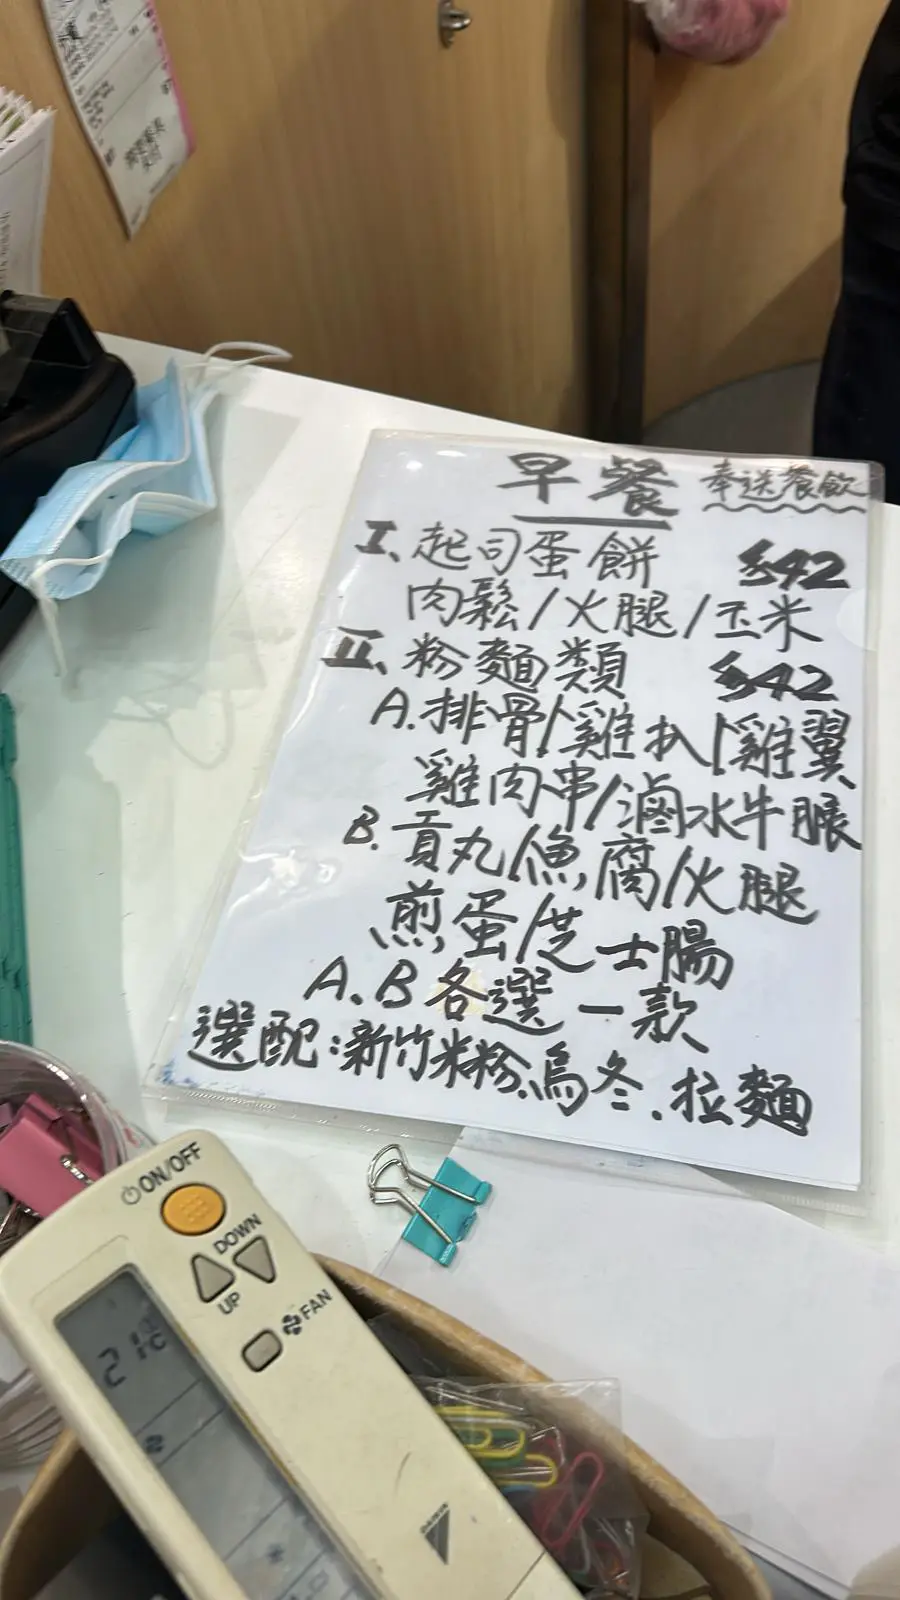 早餐 奉送餐飲
I、起司蛋餅 $42
肉鬆/火腿/玉米
II、粉麵類 $42
A.排骨/雞扒/雞翼
雞肉串/滷水牛脹
B.貢丸/魚腐/火腿
煎蛋/芝士腸
A、B各選一款
選配:新竹米粉、烏冬、拉麵
ON/OFF
DOWN
UP
FAN
21°C
DAIKIN